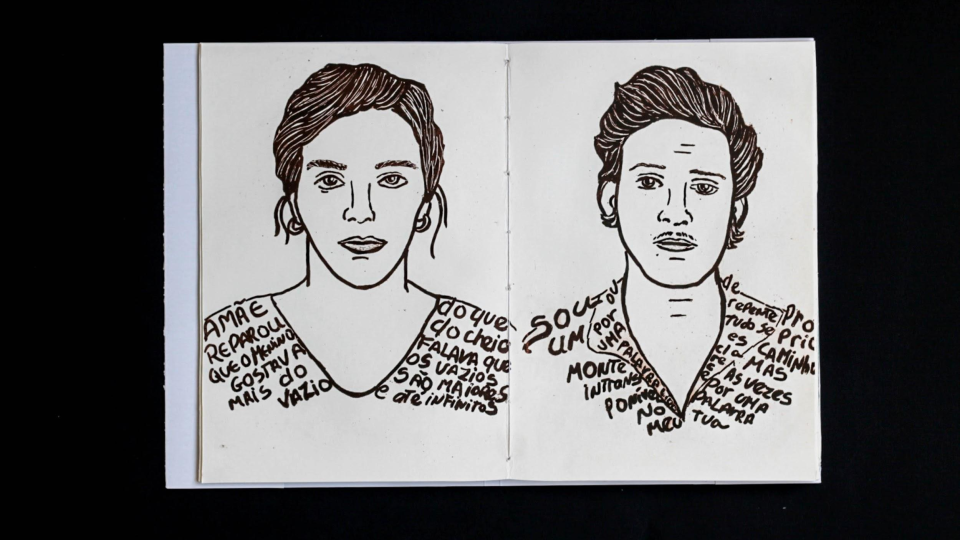 A MÃE
REPAROU
QUE O MENINO
GOSTAVA
MAIS do
VAZIO
do que
do cheio
FALAVA que
OS VAZIOS
SÃO MAIORES
e até infinitos
SOU
UM
MONTE
INTRANS
PONÍVEL
NO
MEU
PRO
PRIO
CAMINHO
MAS
ÀS VEZES
POR UMA
PALAVRA
TUA
OU
POR
UMA
PALAVRA
de
repente
tudo se
es
cla
re